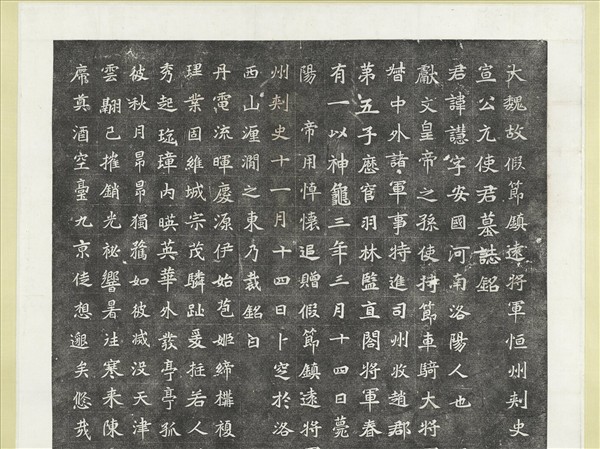 大魏故假節鎮遠將軍恒州刾史
宣公元使君墓誌銘
君諱譿字安國河南洛陽人也
獻文皇帝之孫使持節車騎大將
督中外諸軍事特進司州牧趙郡
第五子歷官羽林監直閤將軍春
有一以神龜三年三月十四日薨
陽 帝用悼懷追贈假節鎮遠將
州刾史十一月十四日卜窆於洛
西山瀍澗之東乃裁銘曰
丹電流暉慶源伊始苞姬締構複
理業固維城宗茂驎趾爰挺若人
秀起琁璋內暎英華外發亭亭孤
彼秋月昂昂獨騖如彼滅没天津
雲翻已摧銷光祕響暑往寒來陳
席奠酒空臺九京徒想邈矣悠哉